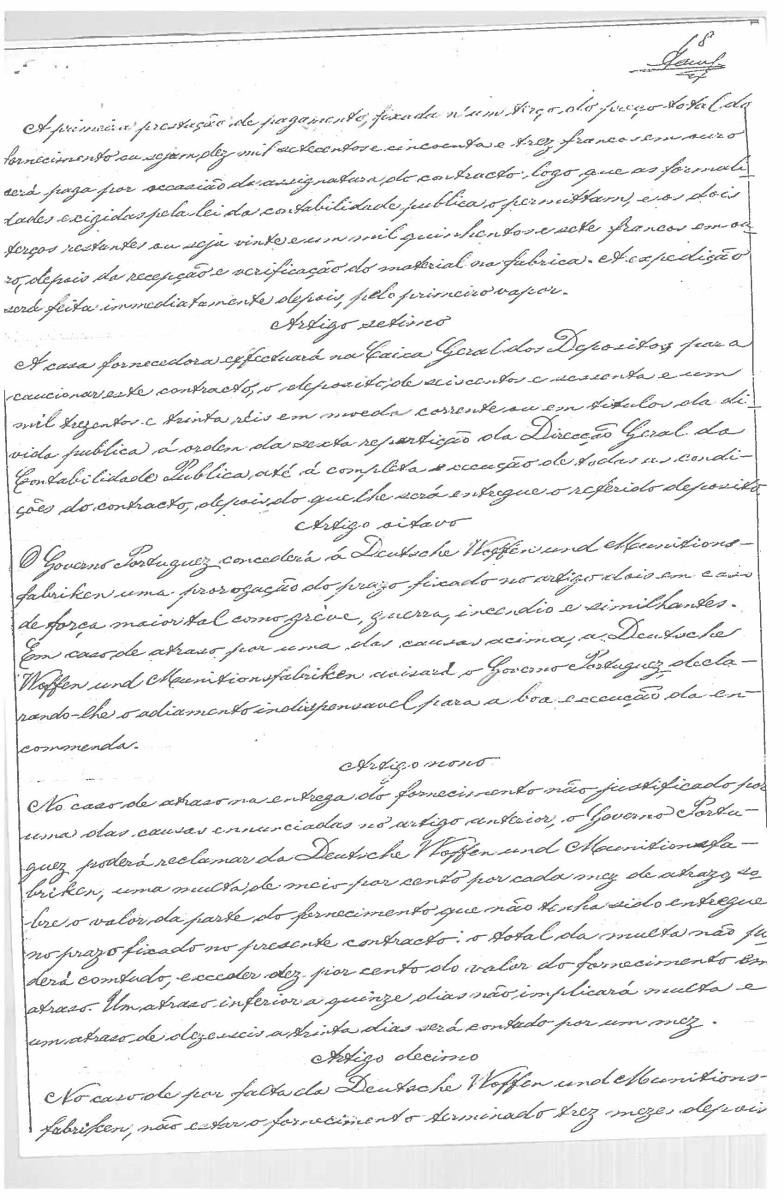 8
A primeira prestação de pagamento, fixada n'um terço do preço total do
fornecimento ou sejam, dez mil setecentos e cincoenta e trez francos em ouro
será paga por occasião da assignatura do contracto logo que as formali-
dades exigidas pela lei da contabilidade publica o permittam, e os dois
terços restantes ou seja vinte e um mil quinhentos e sete francos em ou-
ro, depois da recepção e verificação do material na fabrica. A expedição
será feita immediatamente depois, pelo primeiro vapor.
Artigo setimo
A casa fornecedora effectuará na Caixa Geral dos Depositos, para
caucionar este contracto, o deposito, de seiscentos e sessenta e um
mil trezentos e trinta réis em moeda corrente ou em titulos da di-
vida publica á ordem da sexta repartição da Direcção Geral da
Contabilidade Publica, até á completa execução de todas as condi-
ções do contracto, depois do que lhe será entregue o referido deposito
Artigo oitavo
O Governo Portuguez concederá á Deutsche Waffen und Munitions-
fabriken uma prorogação do prazo fixado no artigo dois em caso
de força maior tal como gréve, guerra, incendio e similhantes.
Em caso de atraso por uma das causas acima, a Deutsche
Waffen und Munitionsfabriken avisará o Governo Portuguez, decla-
rando-lhe o adiamento indispensavel para a boa execução da en-
commenda.
Artigo nono
No caso de atraso na entrega do fornecimento não justificado por
uma das causas ennunciadas no artigo anterior, o Governo Portu-
guez, poderá reclamar da Deutsche Waffen und Munitionsfa-
briken, uma multa, de meio por cento por cada mez de atrazo, so-
bre o valor da parte do fornecimento que não tenha sido entregue
no prazo fixado no presente contracto: o total da multa não po
derá comtudo, exceder dez por cento do valor do fornecimento em
atraso. Um atraso inferior a quinze dias não implicará multa e
um atraso de dezeseis a trinta dias será contado por um mez.
Artigo decimo
No caso de por falta da Deutsche Waffen und Munitions-
fabriken, não estar o fornecimento terminado trez mezes depois